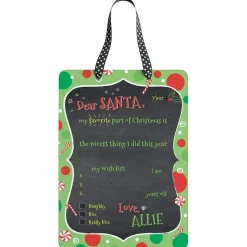 Dear SANTA, Year
my favorite part of Christmas is
the nicest thing I did this year
my wish list I am
1.
2. years old
3.
Naughty
Nice Love,
Really Nice ALLIE